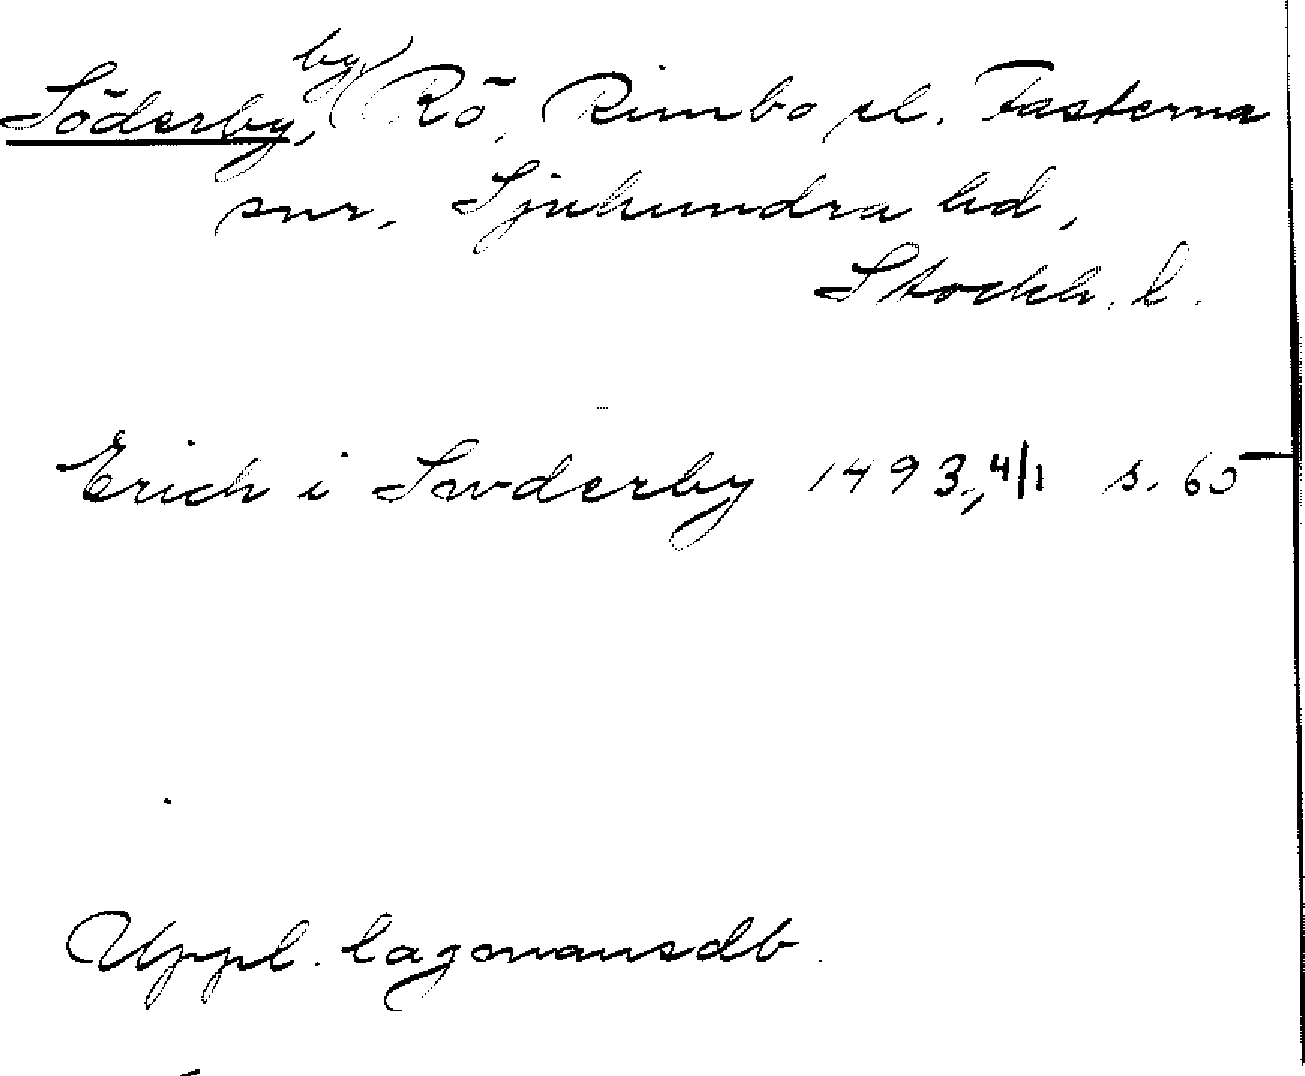 Söderby, by, Rö, Rimbo el. Fasterna
snr, Sjuhundra hd,
Stockh. l.
Erich i Swderby 1493, 4/1 s. 65
Uppl. lagmansdb.